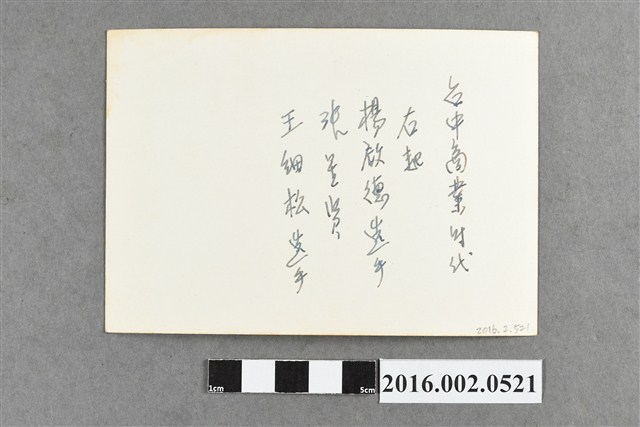 台中商業时代
右起
楊啟德選手
張星賢
王細松選手
2016.2.521
1cm
5cm
2016.002.0521